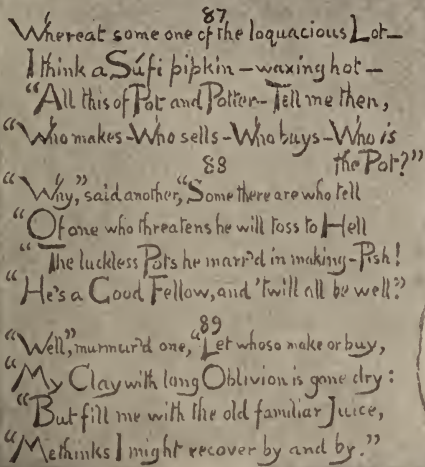 87
Whereat some one of the loquacious Lot—
I think a Súfi pipkin—waxing hot—
“All this of Pot and Potter—Tell me then,
“Who makes—Who sells—Who buys—Who is
the Pot?”
88
“Why,” said another, “Some there are who tell
“Of one who threatens he will toss to Hell
“The luckless Pots he marr'd in making—Pish!
“He's a Good Fellow, and 'twill all be well.”
89
“Well,” murmur'd one, “Let whoso make or buy,
“My Clay with long Oblivion is gone dry:
“But fill me with the old familiar Juice,
“Methinks I might recover by and by.”